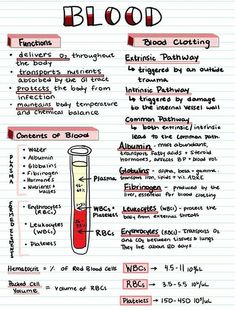 BLOOD
Functions
• delivers O₂ throughout
the body
• transports nutrients
absorbed by the GI tract
• protects the body from
infection
• maintains body temperature
and chemical balance
Blood Clotting
Extrinsic Pathway
↳ triggered by an outside
trauma
Intrinsic Pathway
↳ triggered by damage
to the internal vessel wall
Common Pathway
↳ both extrinsic/intrinsic
lead to the common path.
Contents of Blood
PLASMA
• Water
• Albumin
• Globulins
• Fibrinogen
• Hormones
• Nutrients +
wastes
FORMED ELEMENTS
• Erythrocytes
(RBCs)
• Leukocytes
(WBCs)
• Platelets
55%
Plasma
WBCs
Platelets
45%
RBCs
Albumin - most abundant,
transports fatty acids + steroid
hormones, affects BP + blood vol.
Globulins - alpha, beta + gamma
transport iron, lipids + vit.
Fibrinogen - produced by the
liver, essential for blood clotting
Leukocytes (WBCs) - protect the
body from external threats
Erythrocytes (RBCs) - transports O₂
and CO₂ between tissues & lungs
they live about 120 days
Hematocrit = % of Red Blood Cells
Packed Cell
Volume = Volume of RBCs
WBCs → 4.5-11
RBCs → 3.5-5.5
Platelets → 150-450